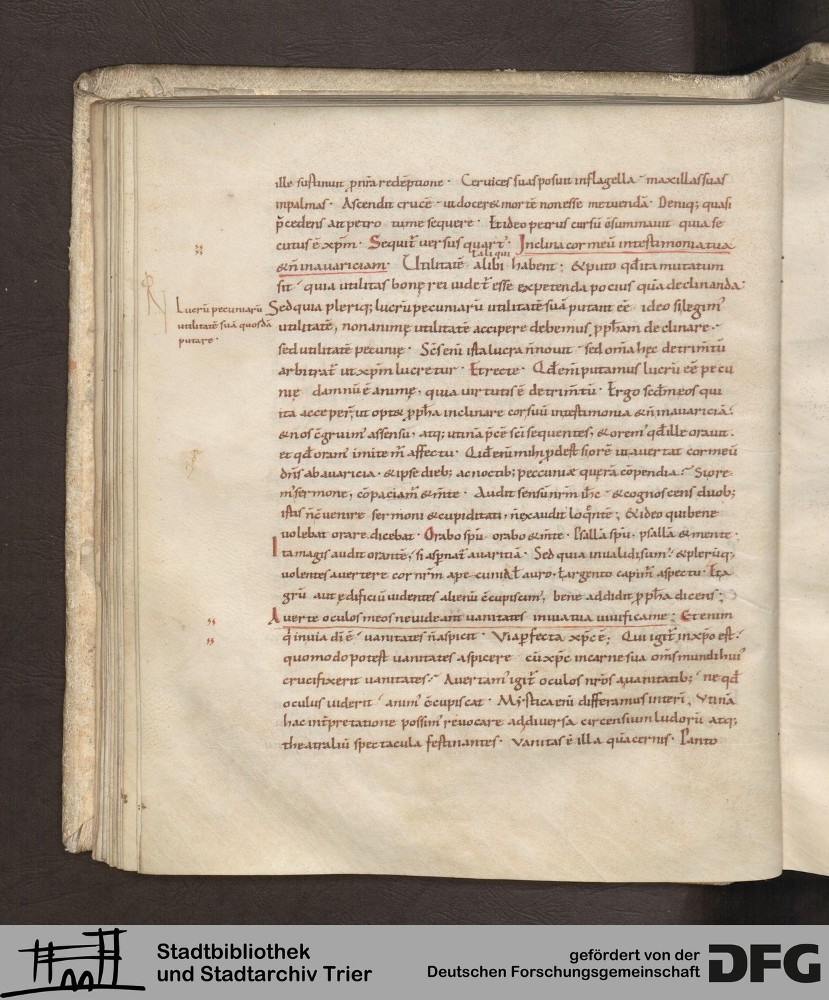 ille sustinuit ꝓ nr̄a redēptione · Cervices suas posuit in flagella · maxillas suas
in palmas · Ascendit crucē · ut docer& mortē non esse metuendā · Deniq; quasi
p̄cedens ait petro tu me sequere · Et ideo petrus cursū ↄsummauit quia se
cutus ē xp̄m · Sequit̄ versus quart᾿ · Inclina cor meū in testimonia tua
& n̄ in auariciam · Utilitatē tali qui alibi habent ; & puto qđ ita mutatum
sit · quia utilitas bonę rei uidet̄ esse expetenda pocius quā declinanda ·
Sed quia pleriq; lucrū pecuniarū utilitatē suā putant eē · ideo si legim᾿
utilitatē, non animę utilitatē accipere debemus ꝓph̄am declinare ·
sed utilitatē pecunię · Sc̄s eni ista lucra n̄ nouit · sed om̄a hęc detrim̄tū
arbitrat̄ ut xp̄m lucretur · Et recte · Qđ eni putamus lucrū eē pecu
nię damnū ē animę, quia virtutis ē detrim̄tū · Ergo scđm eos qui
ita acceper̄ ut opt& ꝓph̄a inclinare cor suū in testimonia & n̄ in auariciā ·
& nos ↄgruim᾿ assensu, atq; utinā p̄ce sc̄i sequentes, & orem᾿ qđ ille orauit ·
et qđ oram᾿ imitem̄ affectu · Qid eni mihi ꝓdest si orē ut auertat cor meū
dn̄s ab auaricia · & ipse dieb; ac noctib; peccuniæ querā cōpendia · Si ore
m᾿ sermone, cōpaciam̄ & m̄te · Audit sensū nr̄m ih̄c · & cognoscens duob;
istis n̄ ↄvenire sermoni & cupiditati, n̄ exaudit loq̄nte ; & ideo qui bene
uolebat orare dicebat · Orabo spū · orabo & m̄te · Psallā spū, psallā & mente ·
Ita magis audit orantē, si asp̄nat̄ auaritiā · Sed quia inualidi sum᾿ & plerūq;
uolentes auertere cor nr̄m a pecunia ł auro, ł argento capim̄ aspectu · ł ta
grū aut ędificiū uidentes alienū ↄcupiscim᾿, bene addidit ꝓph̄a dicens ;
Auerte oculos meos ne uideant uanitates in uia tua uiuifica me ; Etenim
q̄ in uia dī ē᾿ uanitates n̄ aspicit · Via ꝑfecta xp̄c ē ; Qui igit̄ in xp̄o est ·
quomodo potest uanitates aspicere cū xp̄c in carne sua om̄s mundi hui᾿
crucifixerit uanitates · Auertam᾿ igit̄ oculos nr̄os a uanitatib; ne qđ
oculus uiderit anim᾿ ↄcupiscat · Mystica eni differam᾿ us int̄eri, Vtinā
hac int̄pretatione possim᾿ reuocare ad diuersa circensium ludorū atq;
theatraliū spectacula festinantes · Vanitas ē illa quā cernis · Panto
Lucrū pecuniarū
utilitatē suā quosdā
putare ·
Stadtbibliothek
und Stadtarchiv Trier
gefördert von der
Deutschen Forschungsgemeinschaft
DFG